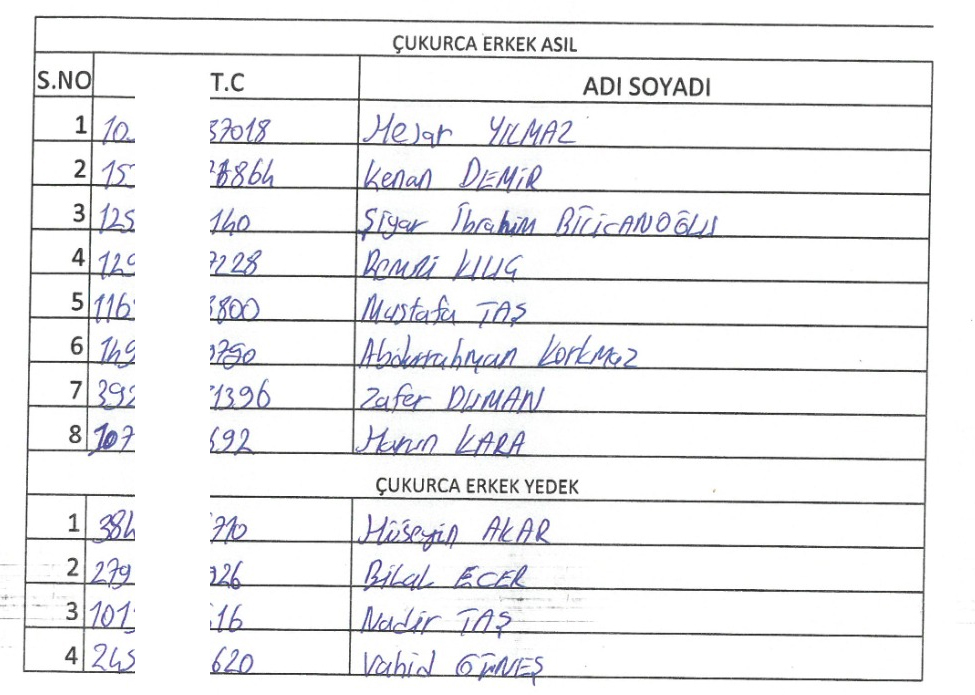 ÇUKURCA ERKEK ASIL
S.NO T.C ADI SOYADI
1 10 37018 Hejar YILMAZ
2 15 8864 Kenan DEMİR
3 125 140 Şiyar İbrahim BİLİCANOĞLU
4 129 7228 Remzi KILIÇ
5 116 3800 Mustafa TAŞ
6 149 0790 Abdurrahman Korkmaz
7 392 1396 Zafer DUMAN
8 107 692 Harun KARA
ÇUKURCA ERKEK YEDEK
1 384 710 Hüseyin AKAR
2 279 926 Bilal ECER
3 101 516 Nadir TAŞ
4 245 620 Vahid GÜNEŞ